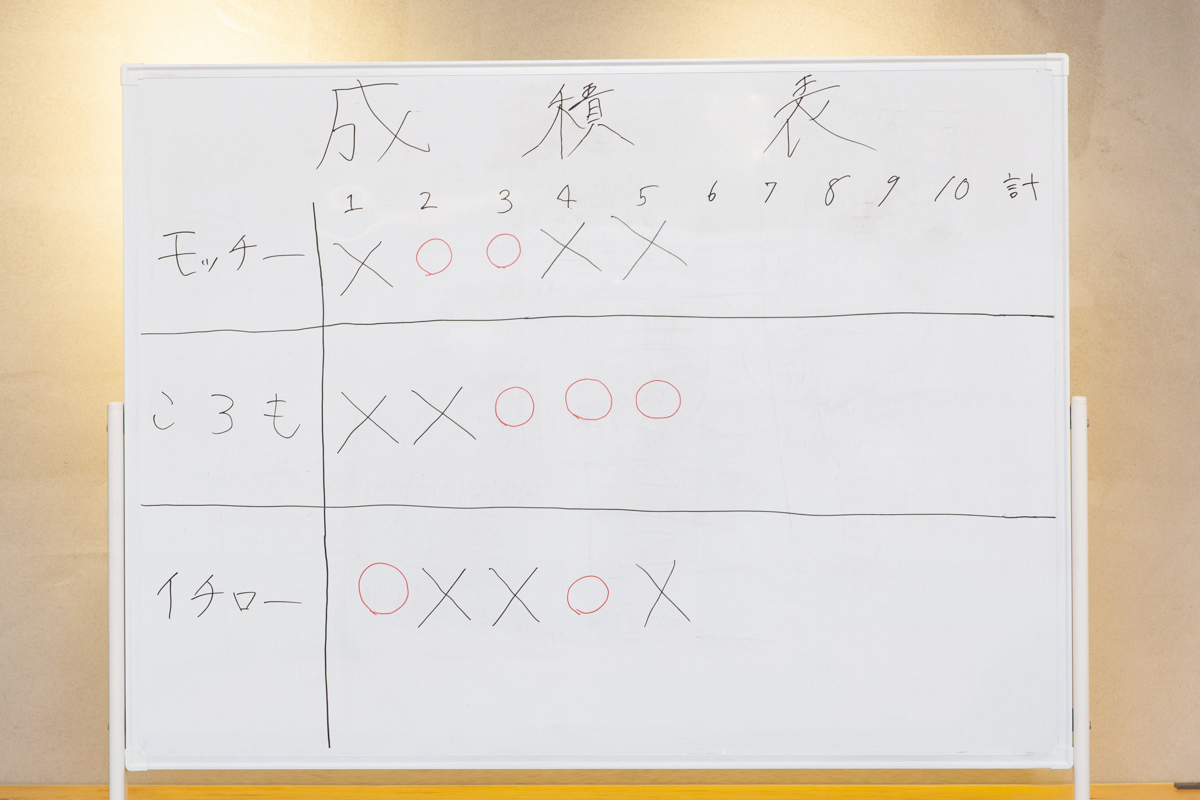 成積表
1 2 3 4 5 6 7 8 9 10 計
モッチー × ○ ○ × ×
ころも × × ○ ○ ○
イチロー ○ × × ○ ×